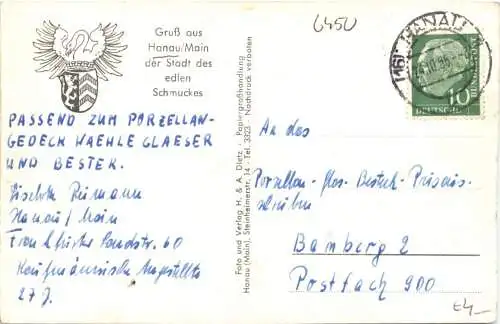 Gruß aus
Hanau/Main
der Stadt des
edlen
Schmuckes
6450
(16) HANAU
10
DEUTSCHE
PASSEND ZUM PORZELLAN-
GEDECK WAEHLE GLAESER
UND BESTER.
Liselotte Reimann
Hanau/Main
Frankfurter Landstr. 60
Kaufmännische Angestellte
27 J.
Foto und Verlag H. & A. Dietz · Papiergroßhandlung
Hanau (Main), Steinheimerstr. 14 · Tel. 3323 · Nachdruck verboten
An das
Porzellan-Glas-Besteck-Preisaus-
schreiben
Bamberg 2
Postfach 900